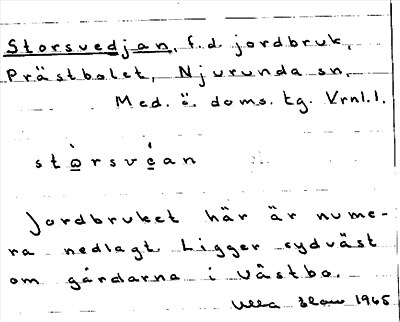 Storsvedjan, f.d. jordbruk,
Prästbolet, Njurunda sn,
Med. ö. doms. tg. Vrnl.l.
stòrsvéan
Jordbruket här är nume-
ra nedlagt. Ligger sydväst
om gårdarna i Västbo.
Ulla 1965